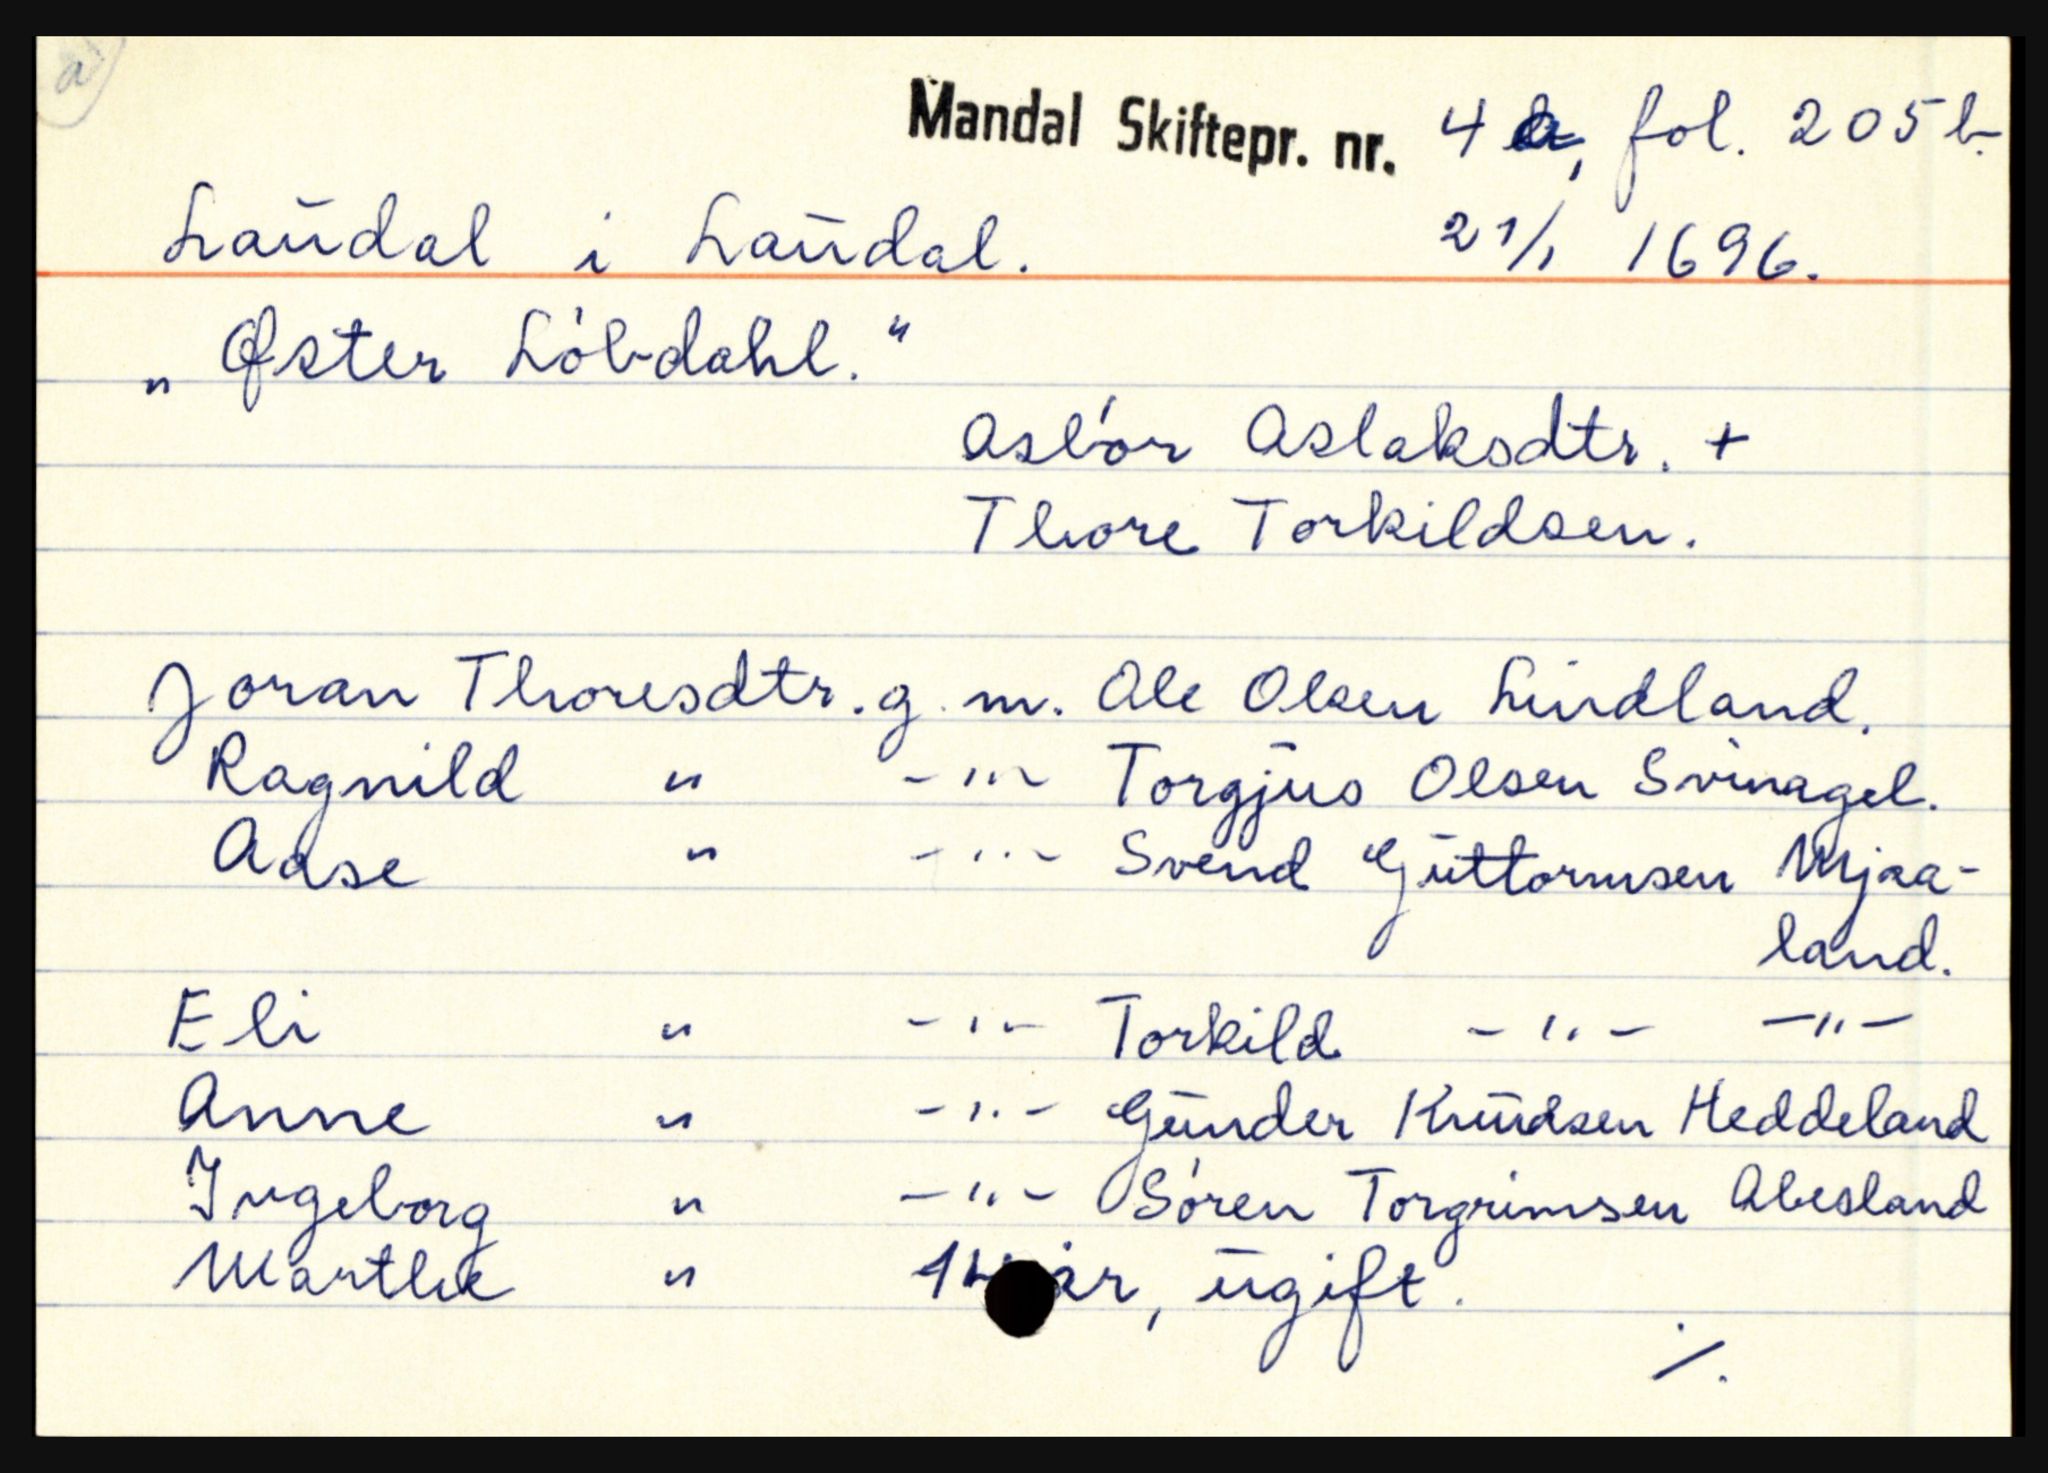 a
Mandal Skiftepr. nr. 4 a, fol. 205 b.
Laudal i Laudal. 21/1 1696.
„ Øster Löbdahl. “
Asbör Aslaksdtr. +
Thore Torkildsen.
Joran Thoresdtr. g. m. Ole Olsen Lindland.
Ragnild " -"- Torgjus Olsen Svinagel.
Adse " -"- Svend Guttormsen Mjaa-
land.
Eli " -"- Torkild -"- -"-
Anne " -"- Gunder Knudsen Heddeland
Ingeborg " -"- Sören Torgrimsen Abesland
Marthe " år, ugift.
./.